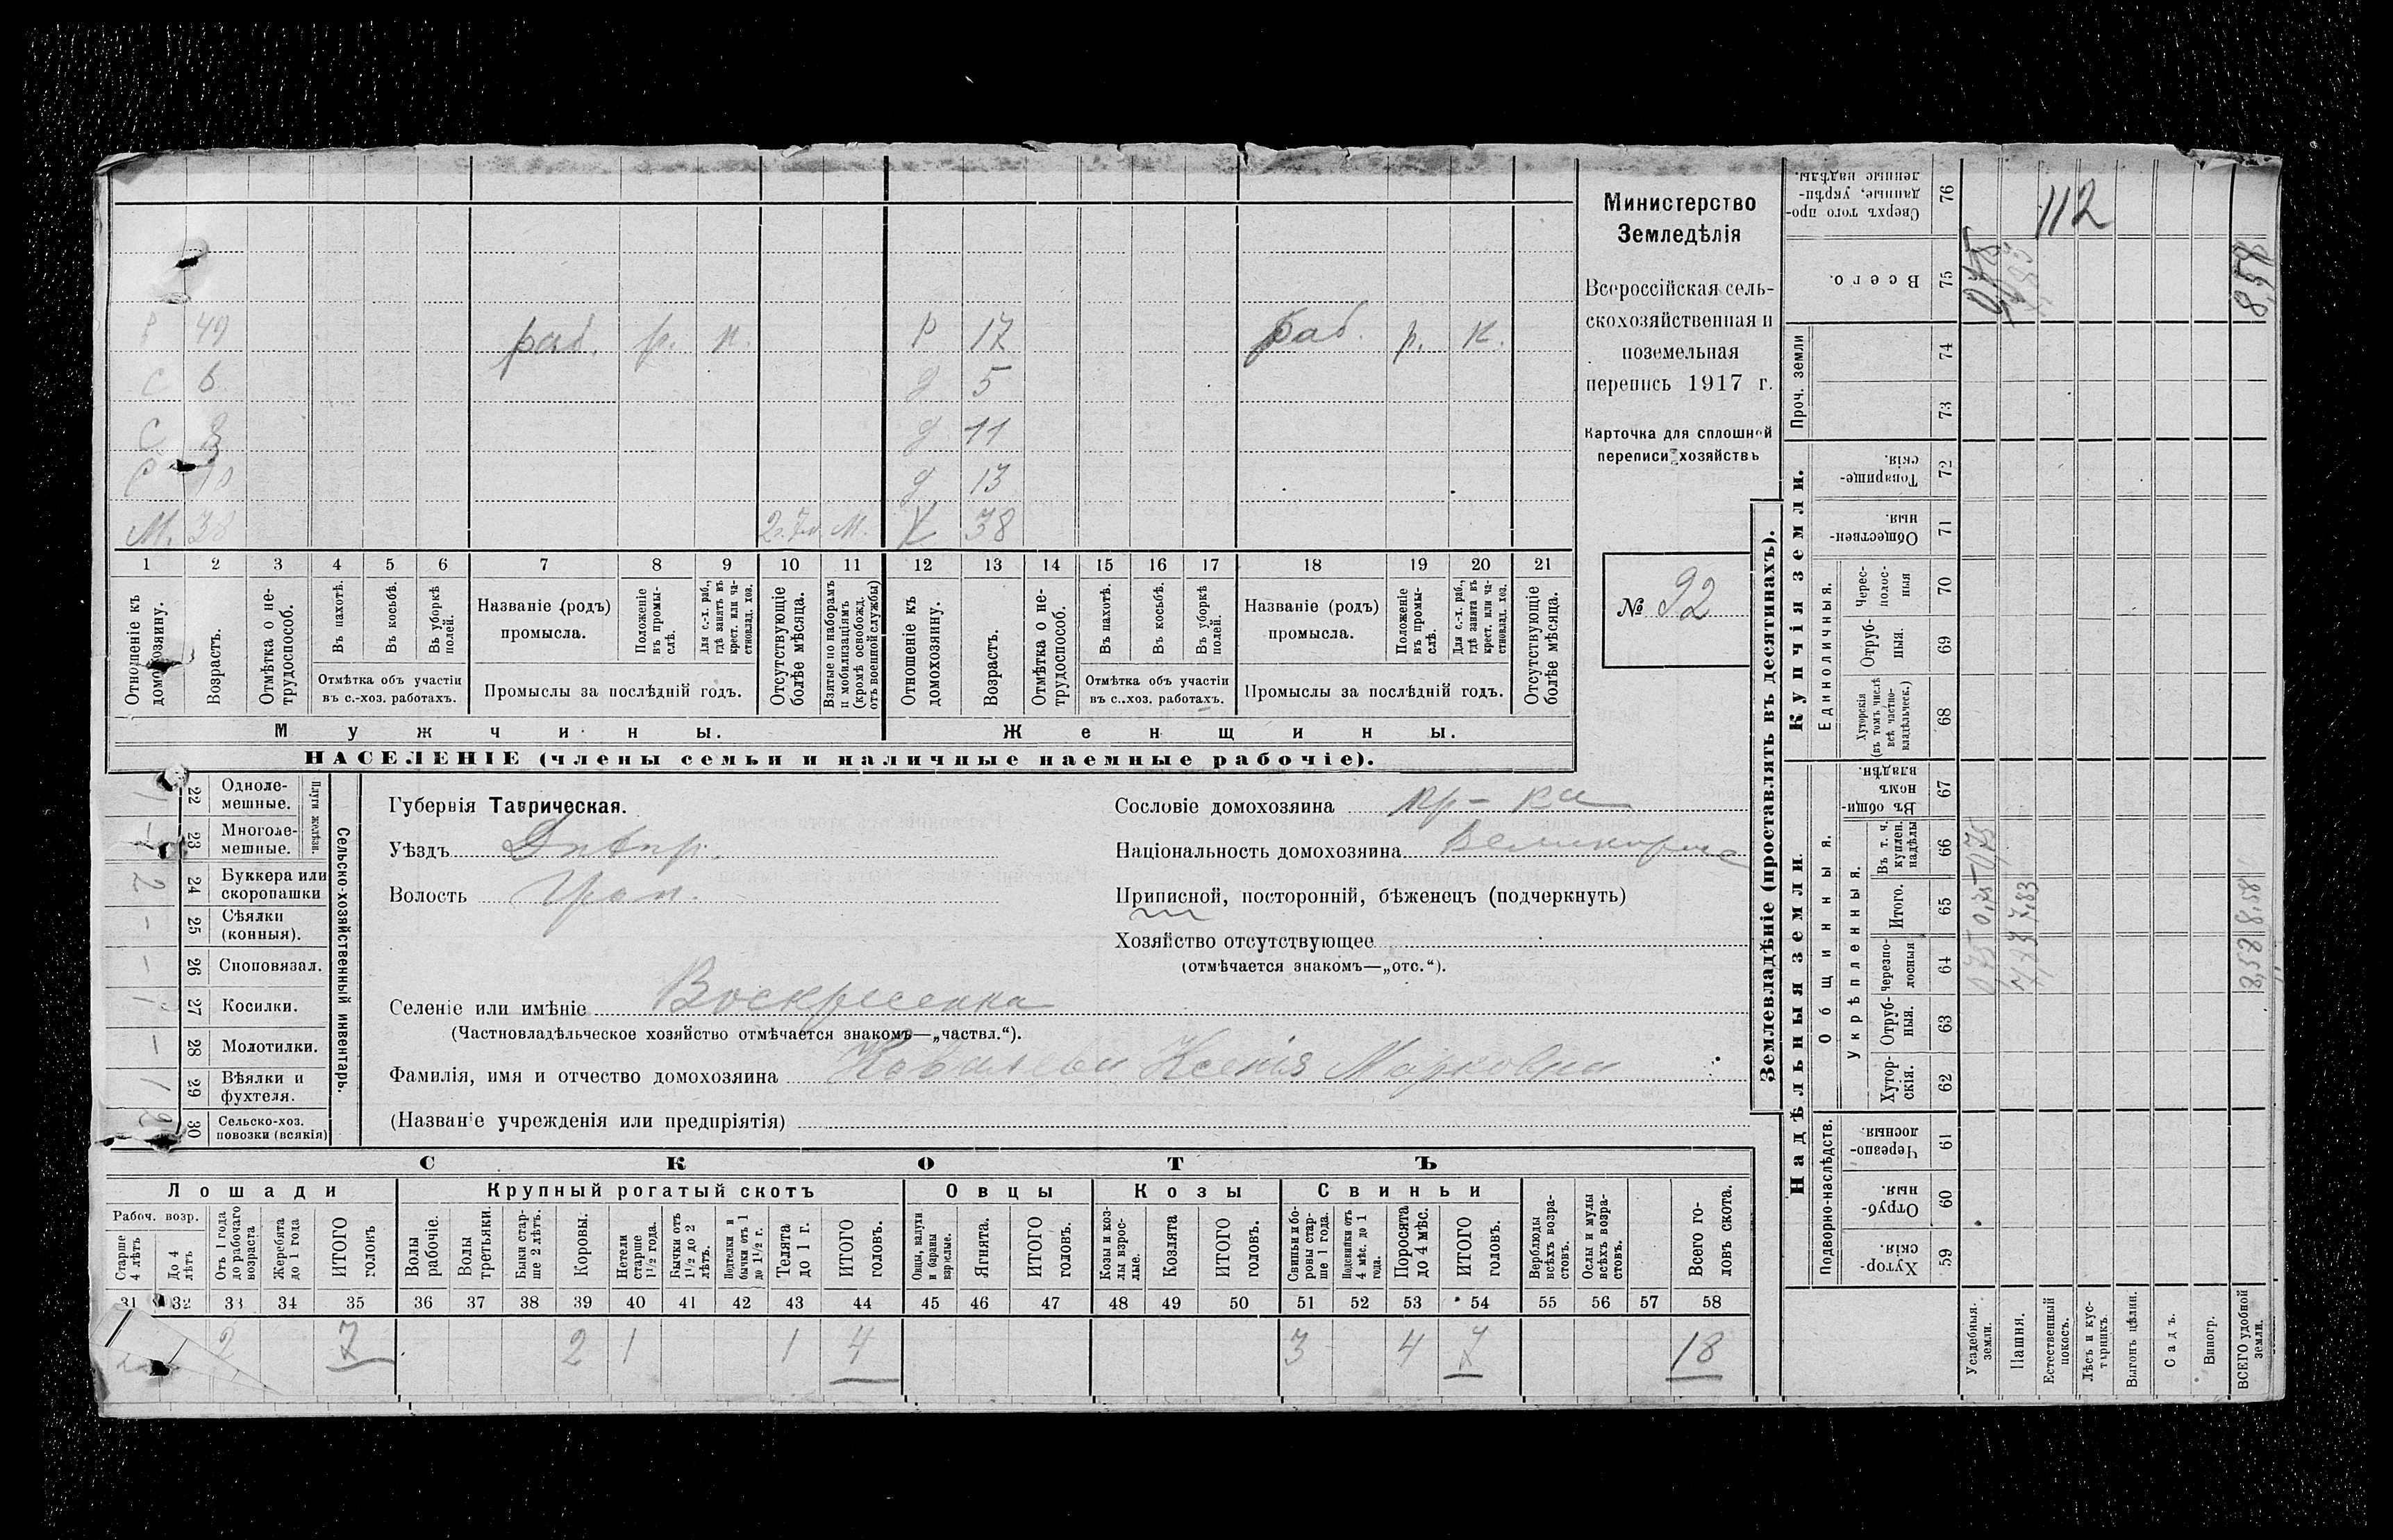 112
Министерство
Земледѣлія
Всероссійская сель-
скохозяйственная и
поземельная
перепись 1917 г.
Карточка для сплошной
переписи хозяйствъ
№ 92
49 раб. р. Р 17 раб. р. к.
С 6 д 5
С д 11
д 13
М. 38 М. Х 38
1 2 3 4 5 6 7 8 9 10 11 12 13 14 15 16 17 18 19 20 21
Отношеніе къ домохозяину.
Возрастъ.
Отмѣтка о не-трудоспособ.
Въ пахотѣ.
Въ косьбѣ.
Въ уборкѣ полей.
Отмѣтка объ участіи
въ с.-хоз. работахъ.
Названіе (родъ)
промысла.
Положеніе въ промы-слѣ.
Для с.-х. раб., гдѣ занятъ въ крест. или ча-стновлад. хоз.
Промыслы за послѣдній годъ.
Отсутствующіе болѣе мѣсяца.
Взятые по наборамъ и мобилизаціямъ (кромѣ освобожд. отъ военной службы)
Отношеніе къ домохозяину.
Возрастъ.
Отмѣтка о не-трудоспособ.
Въ пахотѣ.
Въ косьбѣ.
Въ уборкѣ полей.
Отмѣтка объ участіи
въ с.-хоз. работахъ.
Названіе (родъ)
промысла.
Положеніе въ промы-слѣ.
Для с.-х. раб., гдѣ занята въ крест. или ча-стновлад. хоз.
Промыслы за послѣдній годъ.
Отсутствующіе болѣе мѣсяца.
Мужчины. Женщины.
НАСЕЛЕНІЕ (члены семьи и наличные наемные рабочіе).
Сельско-хозяйственный инвентарь.
Плуги желѣзн.
22 Одноле-мешные.
23 Многоле-мешные.
2 24 Буккера или скоропашки
- 25 Сѣялки (конныя).
- 26 Сноповязал.
1 27 Косилки.
- 28 Молотилки.
1 29 Вѣялки и фухтеля.
30 Сельско-хоз. повозки (всякія)
Губернія Таврическая.
Уѣздъ Днѣпр.
Волость
Селеніе или имѣніе Воскресенка
(Частновладѣльческое хозяйство отмѣчается знакомъ—„частвл.“).
Фамилія, имя и отчество домохозяина Ксенія Марковна
(Названіе учрежденія или предпріятія)
Сословіе домохозяина кр-ка
Національность домохозяина Великорос
Приписной, посторонній, бѣженецъ (подчеркнуть)
Хозяйство отсутствующее
(отмѣчается знакомъ—„отс.“).
СКОТЪ
Лошади Крупный рогатый скотъ Овцы Козы Свиньи
Рабоч. возр.
Старше 4 лѣтъ
До 4 лѣтъ
Отъ 1 года до рабочаго возраста
Жеребята до 1 года
ИТОГО головъ
Волы рабочіе.
Волы третьяки.
Быки стар-ше 2 лѣтъ.
Коровы.
Нетели старше 1½ года.
Бычки отъ 1½ до 2 лѣтъ.
Подтелки и бычки отъ 1 до 1½ г.
Телята до 1 г.
ИТОГО головъ.
Овцы, валухи и бараны взрослые.
Ягнята.
ИТОГО головъ.
Козы и коз-лы взрос-лые.
Козлята
ИТОГО головъ.
Свиньи и бо-ровы стар-ше 1 года.
Подсвинки отъ 4 мѣс. до 1 года.
Поросята до 4 мѣс.
ИТОГО головъ.
Верблюды всѣхъ возра-стовъ.
Ослы и мулы всѣхъ возра-стовъ.
Всего го-ловъ скота.
31 32 33 34 35 36 37 38 39 40 41 42 43 44 45 46 47 48 49 50 51 52 53 54 55 56 57 58
2 7 2 1 1 4 3 4 7 18
Землевладѣніе (проставлять въ десятинахъ).
Надѣльныя земли. Купчія земли. Проч. земли
Подворно-наслѣдств.
Общинныя.
Укрѣпленныя.
Единоличныя.
59 Хутор-скія.
60 Отруб-ныя.
61 Черезпо-лосныя.
62 Хутор-скія.
63 Отруб-ныя.
64 Черезпо-лосныя
65 Итого.
66 Въ т. ч. куплен. надѣлы
67 Въ общин-номъ владѣн.
68 Хуторскія (въ томъ числѣ всѣ частно-владѣльческ.)
69 Отруб-ныя.
70 Черес-полос-ныя
71 Обществен-ныя.
72 Товарище-скія.
73
74
75 Всего.
76 Сверхъ того про-данные, укрѣп-ленные надѣлы.
Усадебныя. земли. 0,75 0,75 0,75
Пашня. 7,83 7,83
Естественный покосъ.
Лѣсъ и кус-тарникъ.
Выгонъ цѣлин.
Садъ.
Виногр.
ВСЕГО удобной земли. 8,58 8,58 8,58